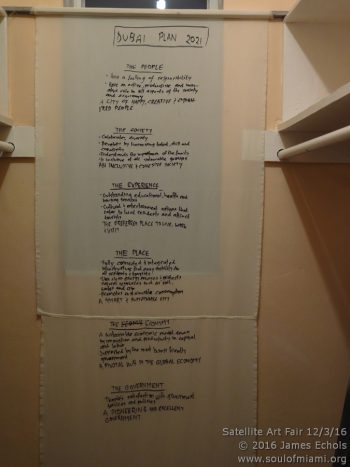 DUBAI PLAN 2021
THE PEOPLE
- Has a feeling of responsibility
role in all aspects of the society
and economy
A CITY OF HAPPY, CREATIVE & EMPOWE-
RED PEOPLE
THE SOCIETY
- Celebrates diversity
- Understands the importance of the family
- Is inclusive of all vulnerable groups
AN INCLUSIVE & COHESIVE SOCIETY
THE EXPERIENCE
- Outstanding educational, health and
housing services
- Cultural & entertainment options that
cater to local residents and attract
tourists
THE PREFERRED PLACE TO LIVE, WORK
& VISIT
THE PLACE
- Fully connected & integrated
infrastructure that
natural resources such as soil,
water and air
A SMART & SUSTAINABLE CITY
THE ECONOMY
A sustainable economic model
by innovation and productivity in capital
and labor
Supported by the most business friendly
government
A PIVOTAL HUB IN THE GLOBAL ECONOMY
THE GOVERNMENT
satisfaction with government
services and policies
A PIONEERING AND EXCELLENT
GOVERNMENT
Satellite Art Fair 12/3/16
© 2016 James Echols
www.soulofmiami.org